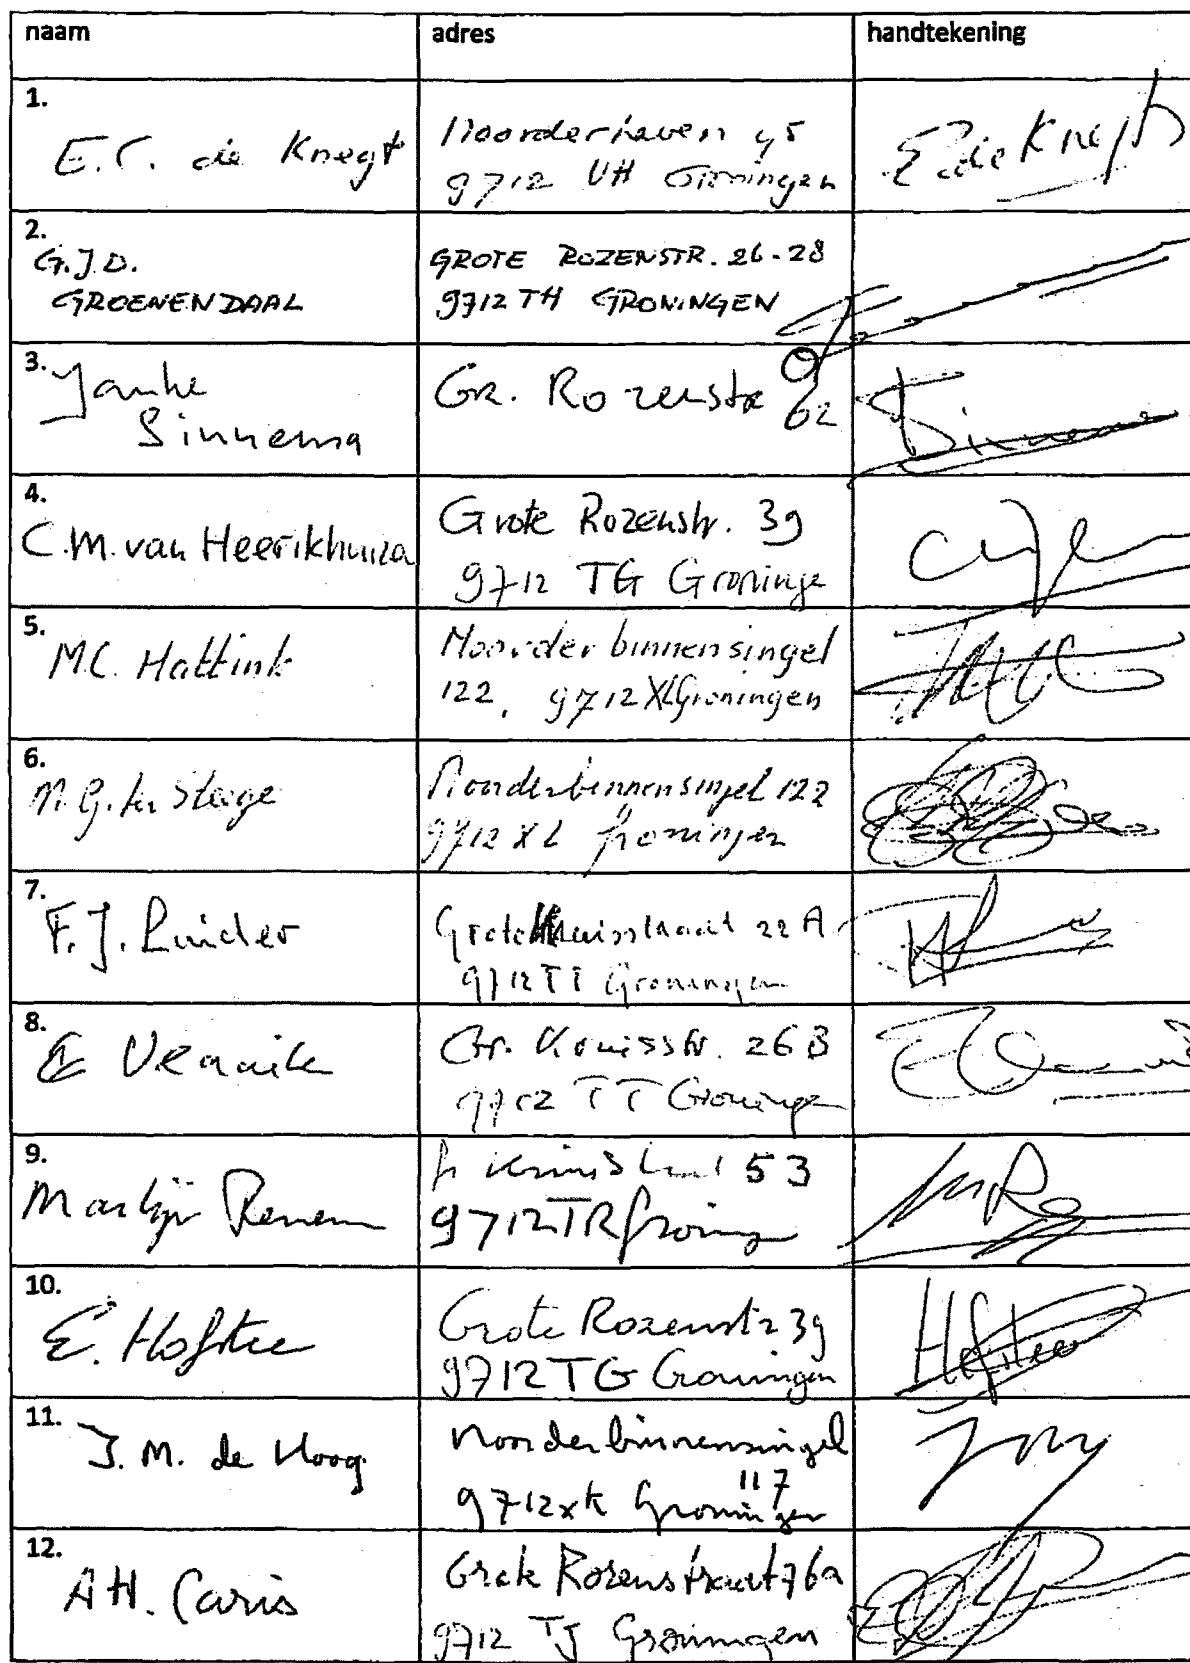 naam adres handtekening
1.
E.C. de Knegt
Noorderhaven 45
9712 VH Groningen
E. de Knegt
2.
G.J.D.
GROENENDAAL
GROTE ROZENSTR. 26-28
9712 TH GRONINGEN
3.
Janke
Sinnema
GR. Rozenstr 62
Sinnema
4.
C.M. van Heerikhuiza
Grote Rozenstr. 39
9712 TG Groninge
5.
M.C. Hattink
Noorderbinnensingel
122, 9712 XL Groningen
6.
Noorderbinnensingel 122
9712 XL Groningen
7.
F.J.
Grote Kruisstraat 22 A
9712 TT Groningen
8.
Gr. Kruisstr. 26 B
9712 TT Groningen
9.
Marlijn
Gr Kruisstraat 53
9712 TR Groningen
10.
E. Hofstee
Grote Rozenstr 39
9712 TG Groningen
Hofstee
11.
J.M. de Hoog
Noorderbinnensingel
117
9712 XK Groningen
12.
A.H. Caris
Grote Rozenstraat 76a
9712 TJ Groningen